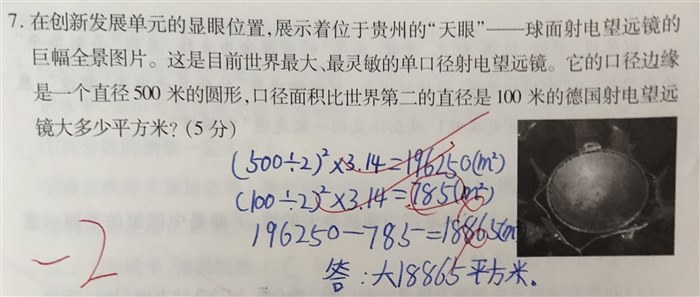 7. 在创新发展单元的显眼位置,展示着位于贵州的“天眼”——球面射电望远镜的
巨幅全景图片。这是目前世界最大、最灵敏的单口径射电望远镜。它的口径边缘
是一个直径500 米的圆形,口径面积比世界第二的直径是 100 米的德国射电望远
镜大多少平方米? (5 分)
(500÷2)²×3.14=196250(m²)
(100÷2)²×3.14=785(m²)
196250-785=18865(m
答:大18865平方米.
-2